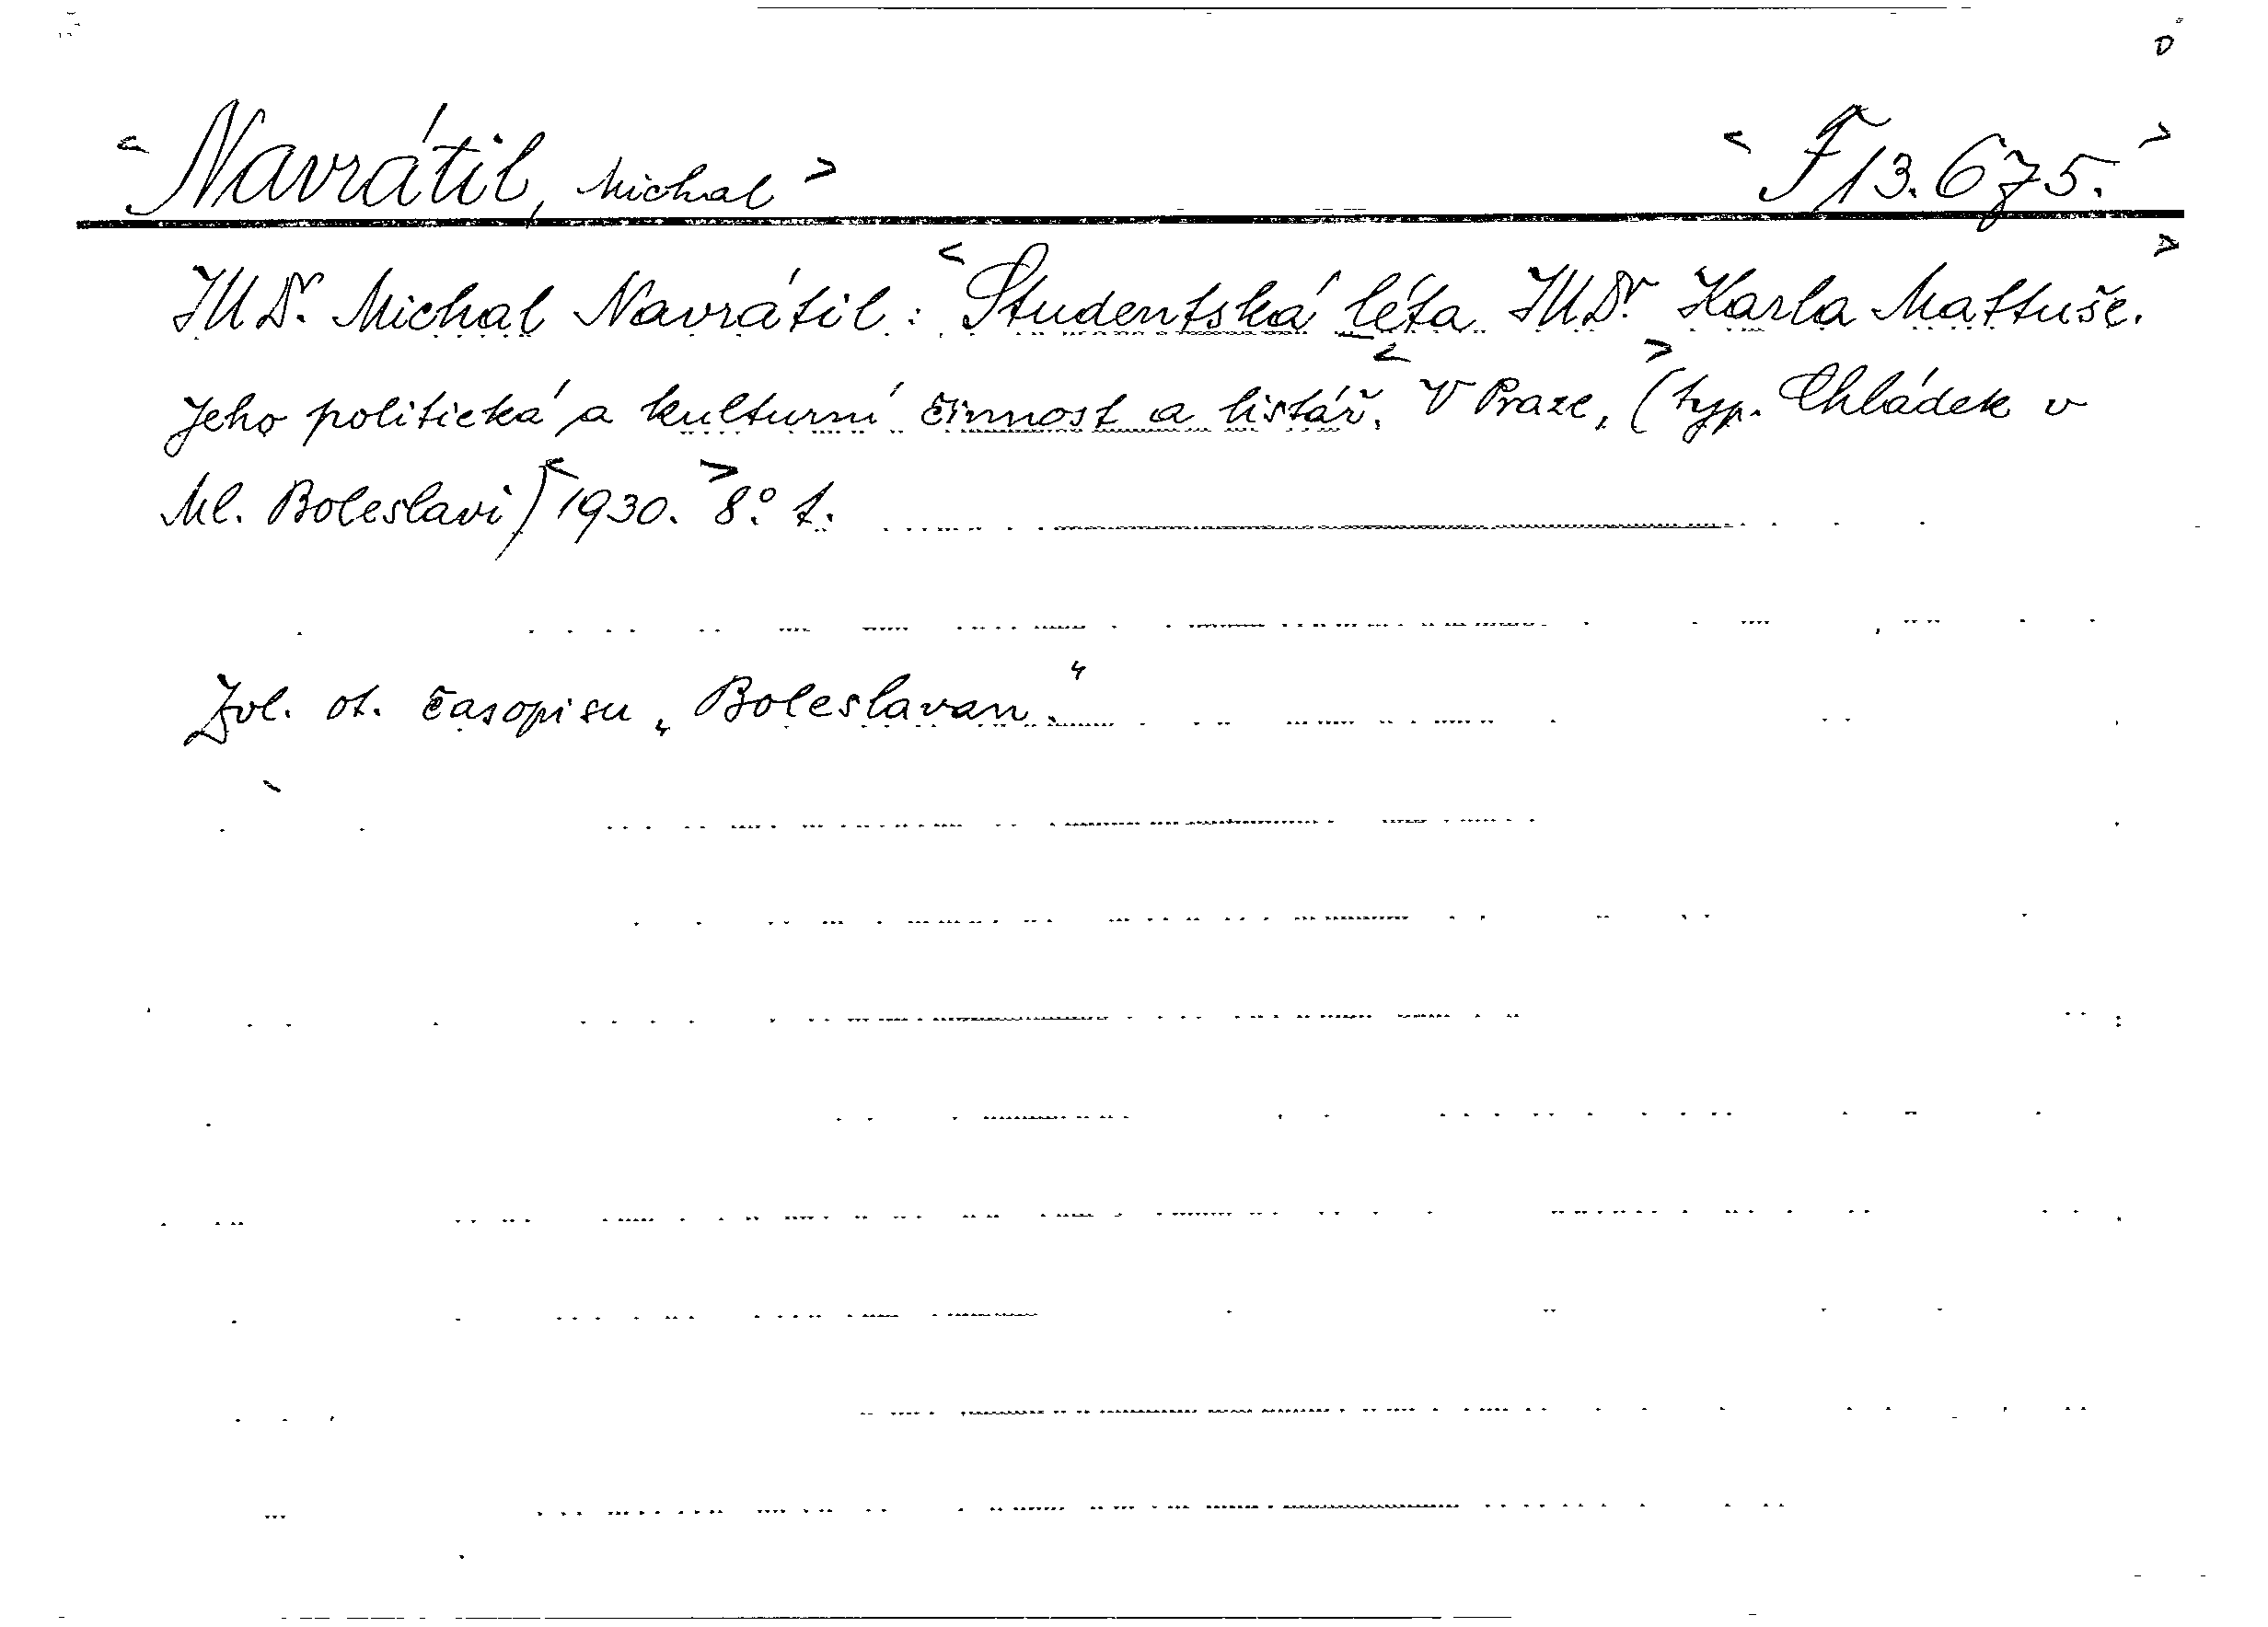 < Navrátil, Michal > < F 13.675. >
JUDr. Michal Navrátil: < Studentská léta JUDr Karla Mattuše. >
Jeho politická a kulturní činnost a listář. < V Praze, > (typ. Chládek v
Ml. Boleslavi) < 1930. > 8° t.
Zvl. ot. časopisu „Boleslavan."